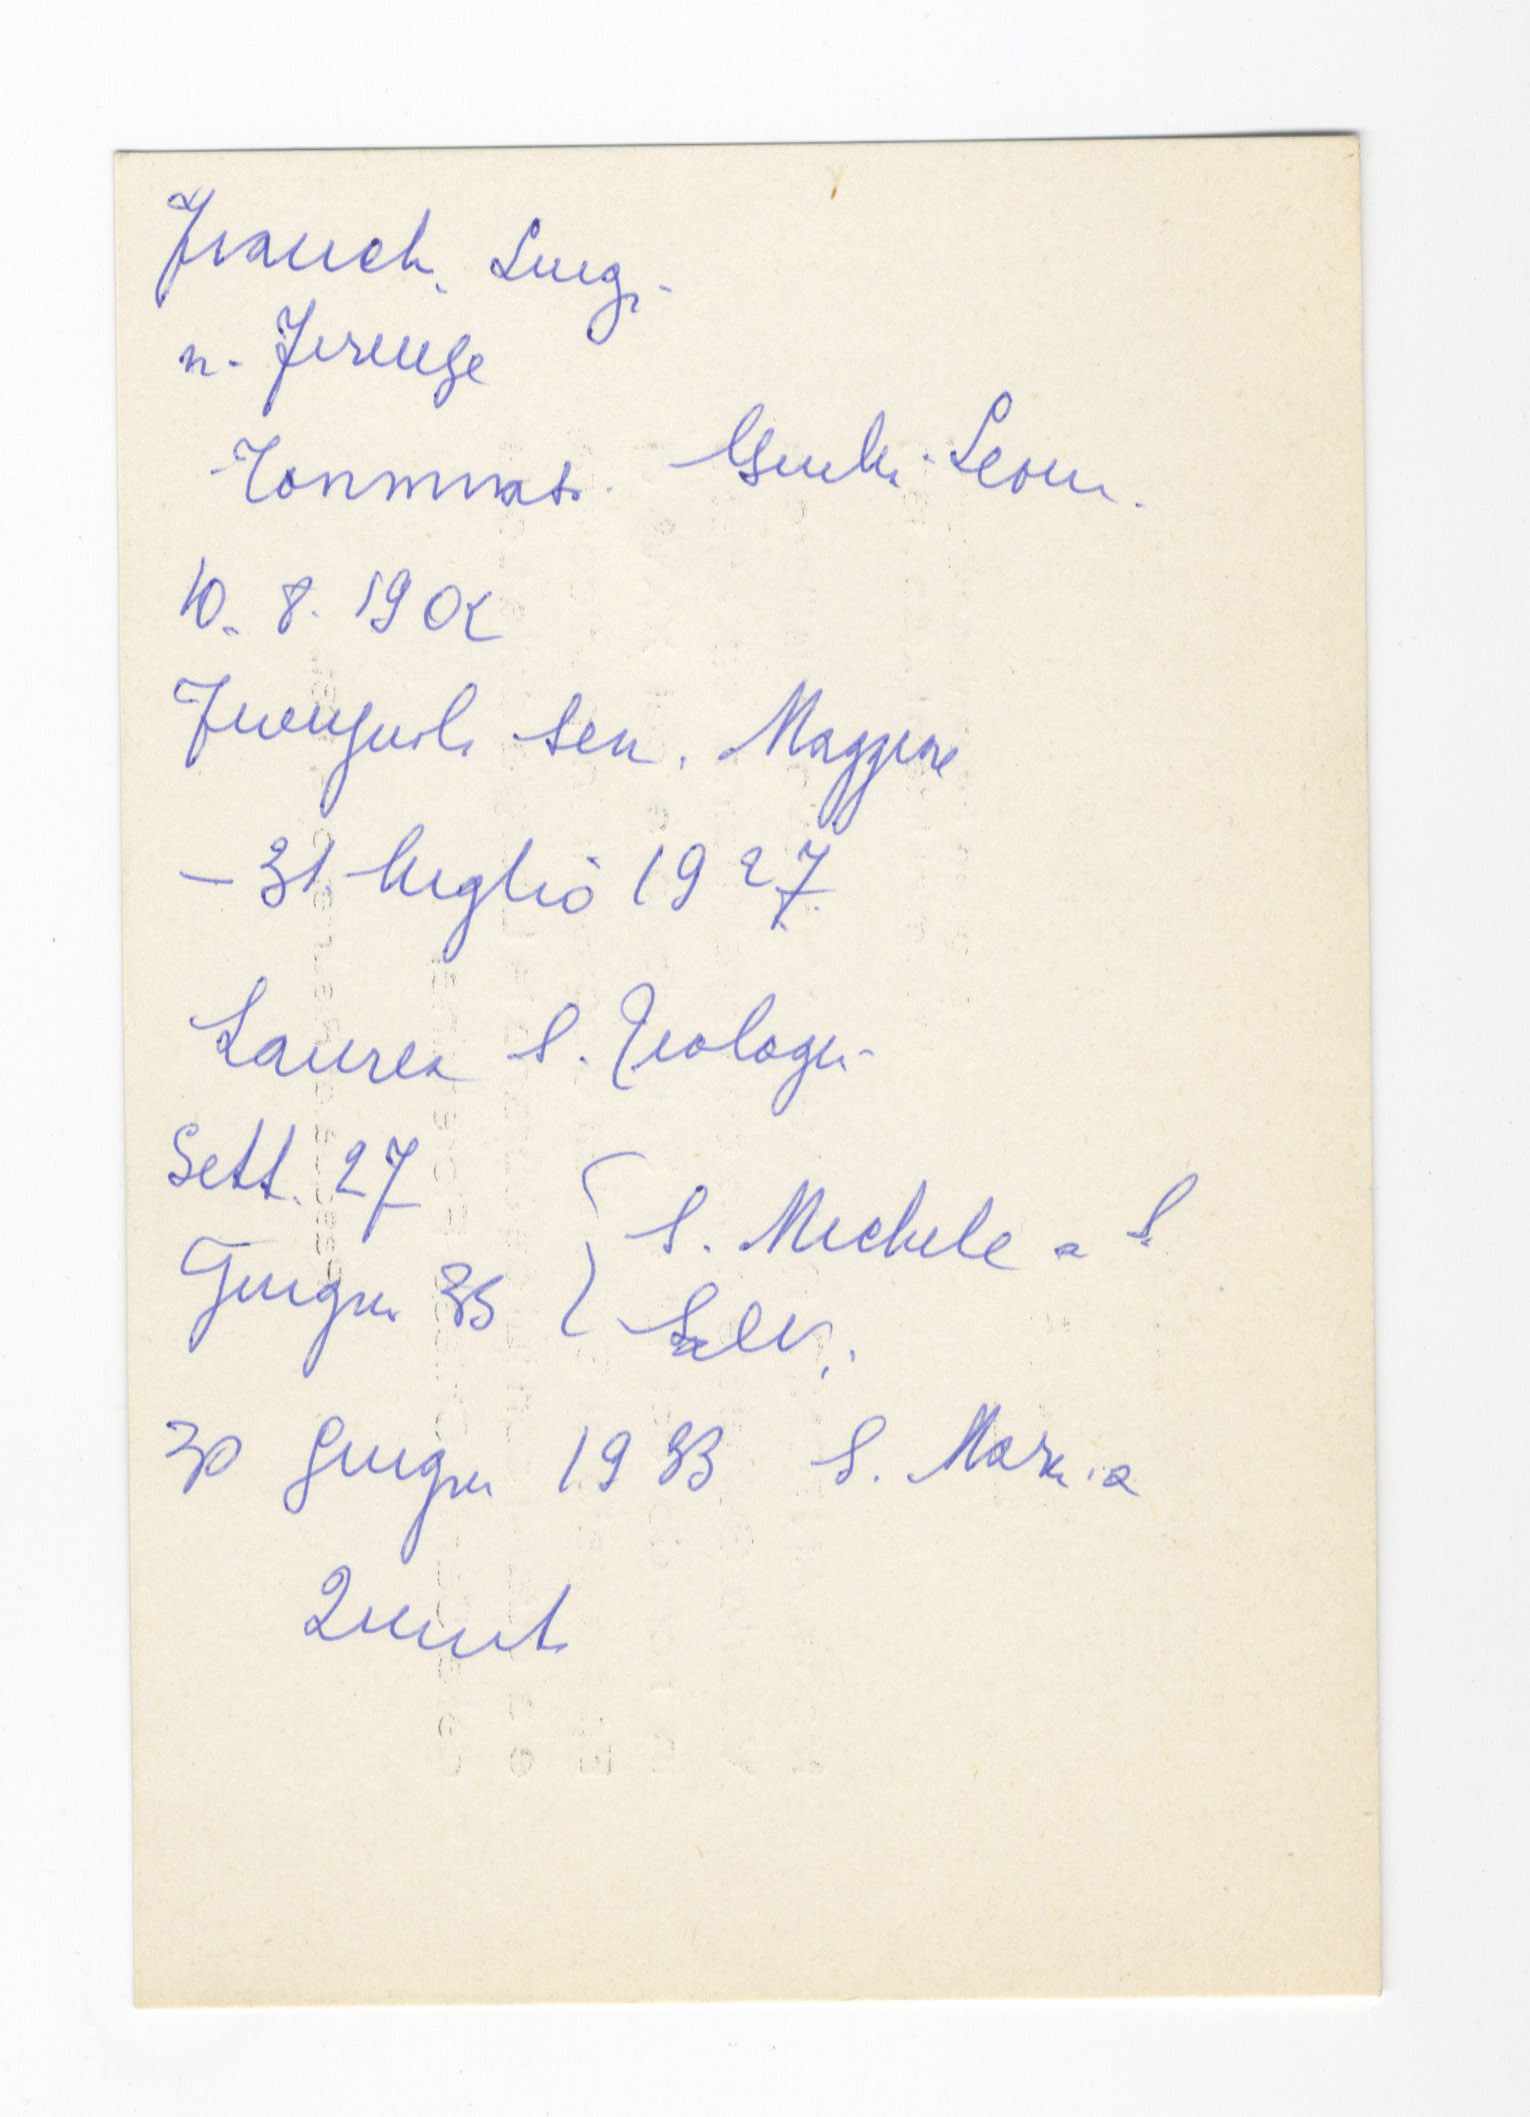 Franch. Luigi
n. Firenze
Tommaso. Leon.
10. 8. 1902
sem. Maggiore
- 31 luglio 1927
Laurea S. Teologia
Sett. 27
Giugno 33 S. Michele a S.
Salv.
30 Giugno 1933 S. Maria a
Quinto